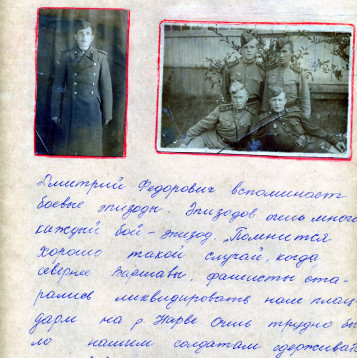 Дмитрий Федорович вспоминает
боевые эпизоды. Эпизодов очень много
каждый бой - эпизод. „Помнится
хорошо такой случай, когда
севернее Варшавы, фашисты ста-
рались ликвидировать наш плац-
дарм на р. Нарев Очень трудно бы-
ло нашим солдатам сдерживать